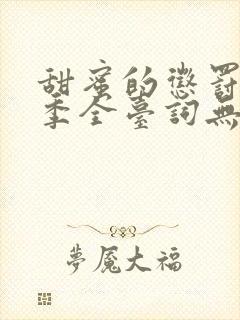 甜蜜的懲罰
季全臺詞無
夢魘大福